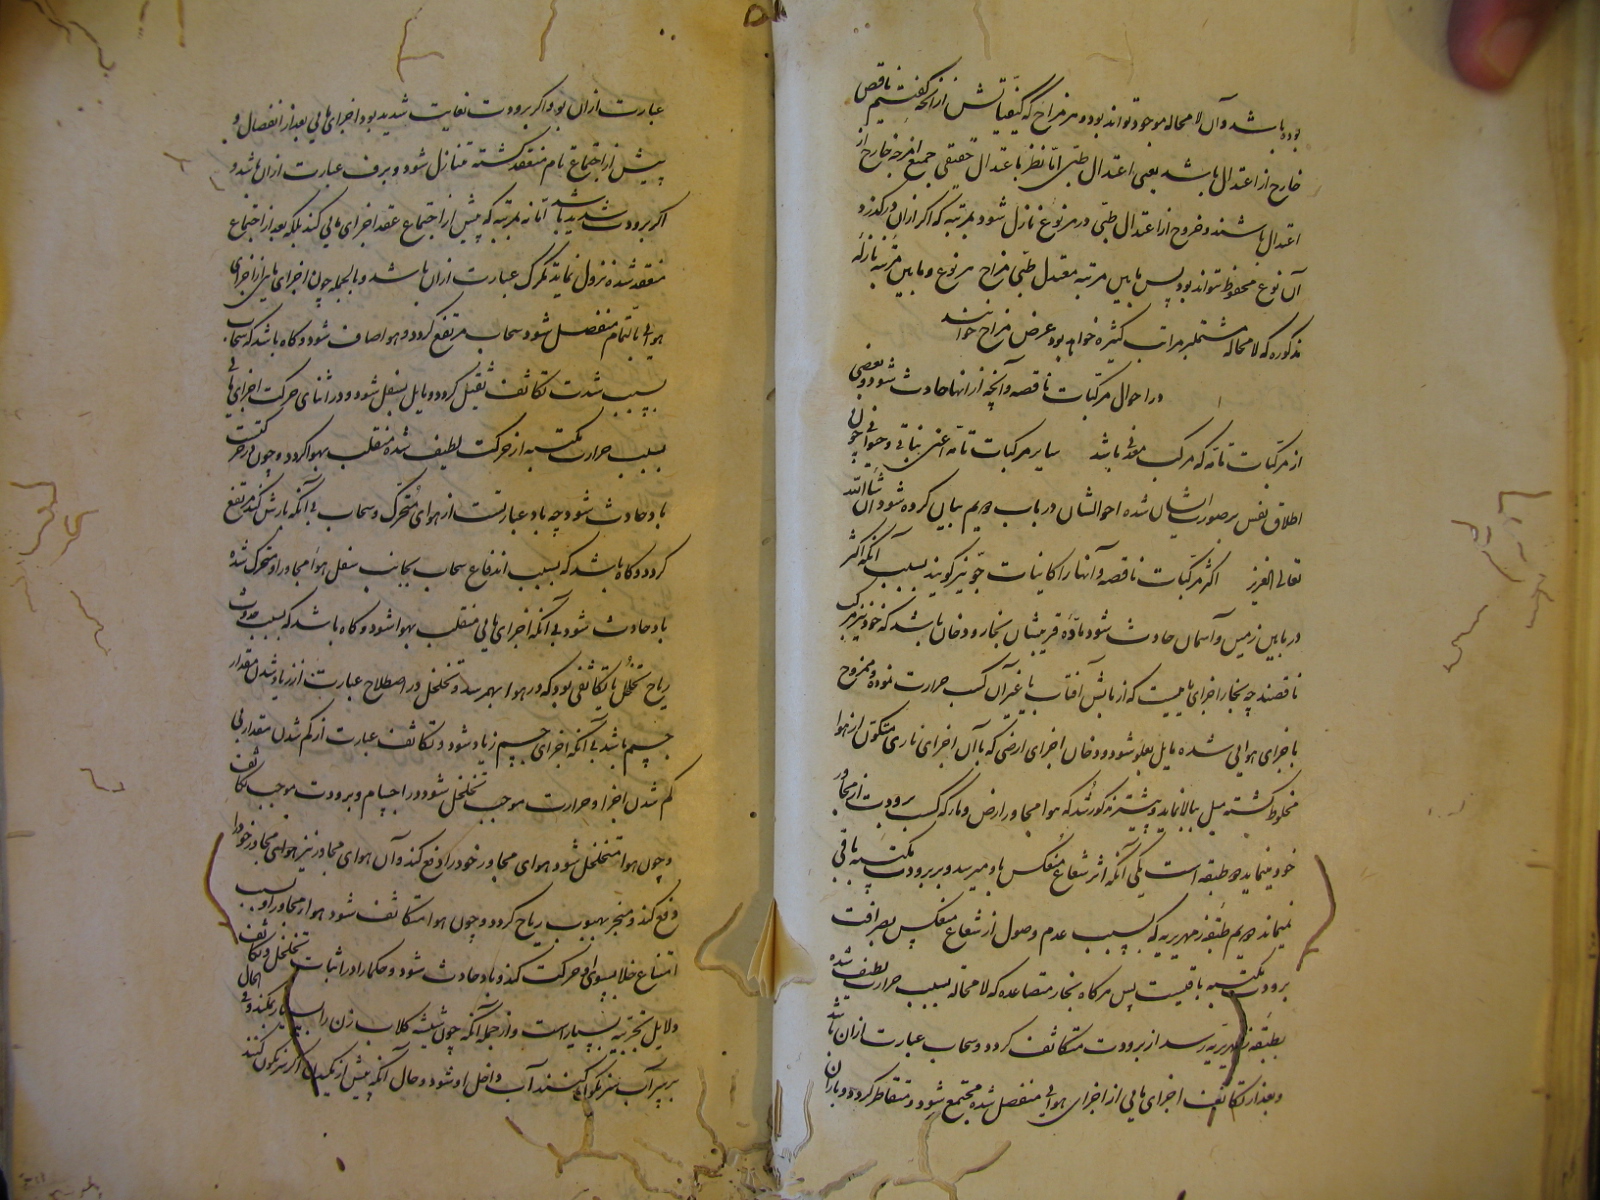 بوده باشد و آن لا محاله موجود تواند بود و هر مزاج که کیفیاتش از آنچه گفتیم ناقص
خارج از اعتدال باشد یعنی اعتدال طبی اما نظر باعتدال حقیقی جمیع امزجه خارج از
اعتدال باشند و خروج از اعتدال طبی در هر نوع نازل شود بمرتبه که اگر از آن درگذرد
آن نوع محفوظ نتواند بود پس مابین مرتبه معتدل طبی مزاج هر نوع و مابین مرتبه نازله
مذکوره که لا محاله مشتمل بر مراتب کثیره خواهد بود عرض مزاج خوانند
در احوال مرکبات ناقصه و آنچه از آنها حادث شود و بعضی
از مرکبات تامه که مرکب معدنی باشد سایر مرکبات تامه اعنی نباتی و حیوانی چون
اطلاق نفس بر صورت ایشان شده احوالشان در باب دویم بیان کرده شود ان شاء الله
تعالی العزیز اکثر مرکبات ناقصه و آنها را کاینات جو نیز گویند بسبب آنکه اکثر
در مابین زمین و آسمان حادث شود ماده قریبشان بخار و دخان باشد که خود نیز مرکب
ناقصند چه بخار اجزای مائیست که از تابش آفتاب یا غیر آن کسب حرارت نموده و ممزوج
با جزای هوایی شده مایل بعلو شود و دخان اجزای ارضی که با آن اجزای ناری متکون از هوا
مخلوط گشته میل ببالا نماید و پیشتر مذکور شد که هوا مجاور ارض و ما که کسب برودت از مجاور
خود مینماید دو طبقه است یکی آنکه اثر شعاع منعکس باو میرسد و بر برودت مکتسبه باقی
نمیماند دویم طبقه زمهریریه که بسبب عدم وصول اثر شعاع منعکس بصرافت
برودت مکتسبه باقیست پس هرگاه بخار متصاعده که لا محاله بسبب حرارت لطیف شده
بطبقه زمهریریه رسد از برودت متکاثف گردد و سحاب عبارت از آن باشد
و بعد از تکاثف اجزای مایی از اجزای هوایی منفصل شده مجتمع شود و متقاطر گردد و باران
عبارت از آن بود و اگر برودت بغایت شدید بود اجزای مایی بعد از انفصال و
پیش از اجتماع تام منعقد گشته متنازل شود و برف عبارت از آن باشد و
اگر برودت شدید باشد اما نه بمرتبه که پیش از اجتماع عقد اجزای مایی کند بلکه بعد از اجتماع
منعقد شده نزول نماید تگرگ عبارت از آن باشد و بالجمله چون اجزای مایی از اجزای
هوایی بالتمام منفصل شود سحاب مرتفع گردد و هوا صاف شود و گاه باشد که سحاب
بسبب شدت تکاثف ثقیل گردد و مایل بسفل شود و در اثنای حرکت اجزای مایی
بسبب حرارت مکتسبه از حرکت لطیف شده منقلب بهوا گردد و چون در حرکتست
باد حادث شود چه باد عبارتست از هوای متحرک و سحاب بی آنکه بارش کند مرتفع
گردد و گاه باشد که بسبب اندفاع سحاب بجانب سفل هوا مجاور او متحرک شده
باد حادث شود بی آنکه اجزای مایی منقلب بهوا شود و گاه باشد که بسبب حدوث
ریاح تخلخل یا تکاثفی بود که در هوا بهم رسد و تخلخل در اصطلاح عبارت از زیاد شدن مقدار
جسم باشد بی آنکه اجزای جسم زیاد شود و تکاثف عبارت از کم شدن مقدار بی
کم شدن اجزا و حرارت موجب تخلخل شود در اجسام و برودت موجب تکاثف
و چون هوا متخلخل شود هوای مجاور خود را دفع کند و آن هوای مجاور نیز هوای مجاور خود را
دفع کند و منجر بهبوب ریاح گردد و چون هوا متکاثف شود هوا از مجاور او بسبب
امتناع خلا بسوی او حرکت کند و باد حادث شود و حکما را در اثبات تخلخل و تکاثف
دلایل تجربیه بسیار است و از جمله آنکه چون شیشه کلاب زن را بسیار بمکند و فی الحال
بر سر آب سرنگون کنند آب داخل او شود و حال آنکه پیش از مکیدن اگر سرنگون کنند